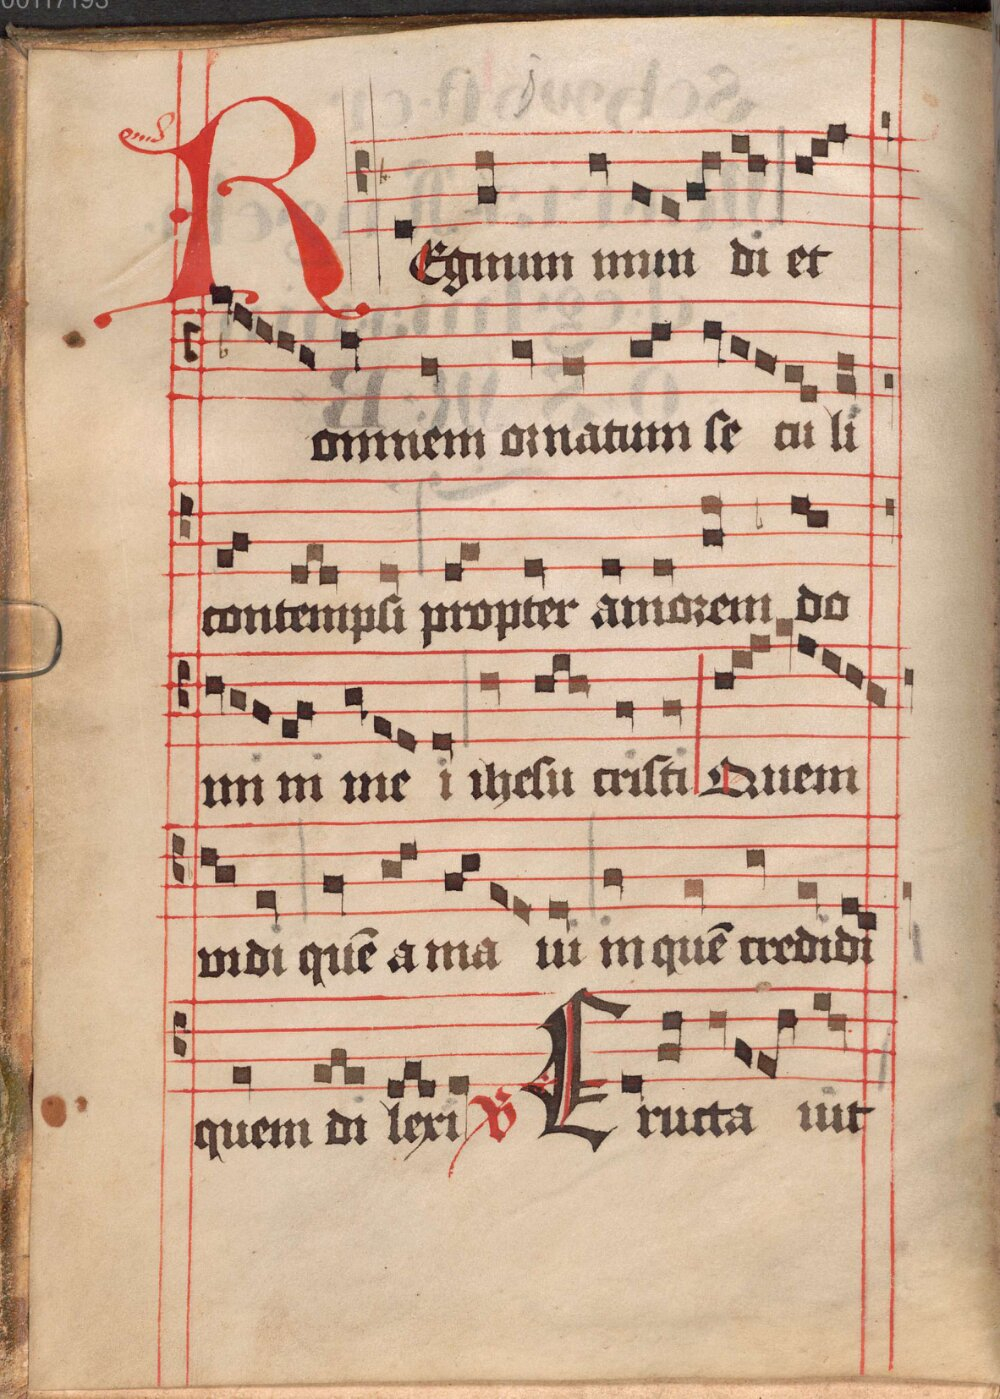 00117193
REgnum mun di et
omnem ornatum se cu li
contempsi propter amorem do
mi ni me i ihesu cristi Quem
vidi quē a ma ui in quē credidi
quem di lexi ℣ Eructa uit